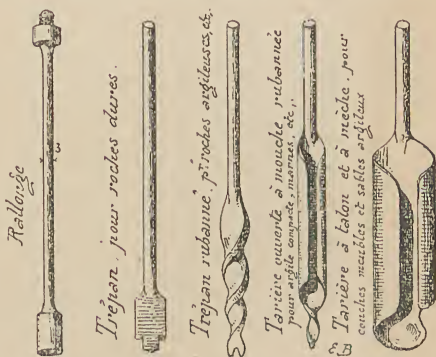 Rallonge
3
Trépan pour roches dures.
Trépan rubanné. pr roches argileuses, etc.
Tarière ouverte à mouche rubannée
pour argile compacte, marnes, etc,
Tarière à talon et à mèche. pour
couches meubles et sables argileux
E.B